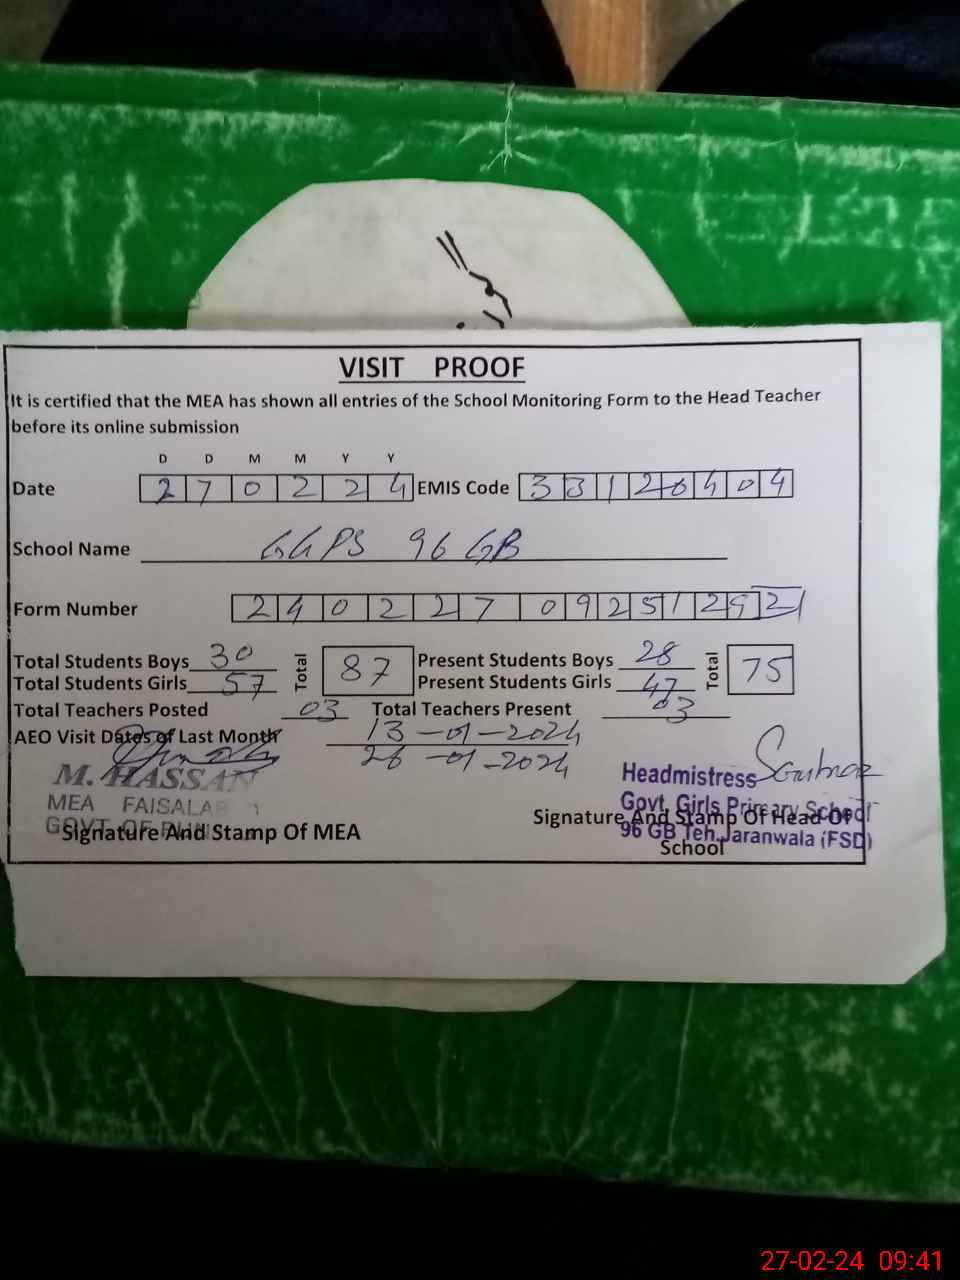 VISIT PROOF
It is certified that the MEA has shown all entries of the School Monitoring Form to the Head Teacher
before its online submission
D D M M Y Y
Date 2 7 0 2 2 4 EMIS Code 3 3 1 2 0 4 0 4
School Name GGPS 96 GB
Form Number 2 4 0 2 2 7 0 9 2 5 1 2 5 2
Total Students Boys 30 Total 87 Present Students Boys 28 Total 75
Total Students Girls 57 Present Students Girls 47
Total Teachers Posted 03 Total Teachers Present 03
AEO Visit Dates of Last Month 13-01-2024
26-01-2024
M. HASSAN
MEA FAISALAB
GOVT OF PUN
Signature And Stamp Of MEA
Headmistress
Govt. Girls Primary School
96 GB Teh. Jaranwala (FSD)
Signature And Stamp Of Head Of
School
27-02-24 09:41